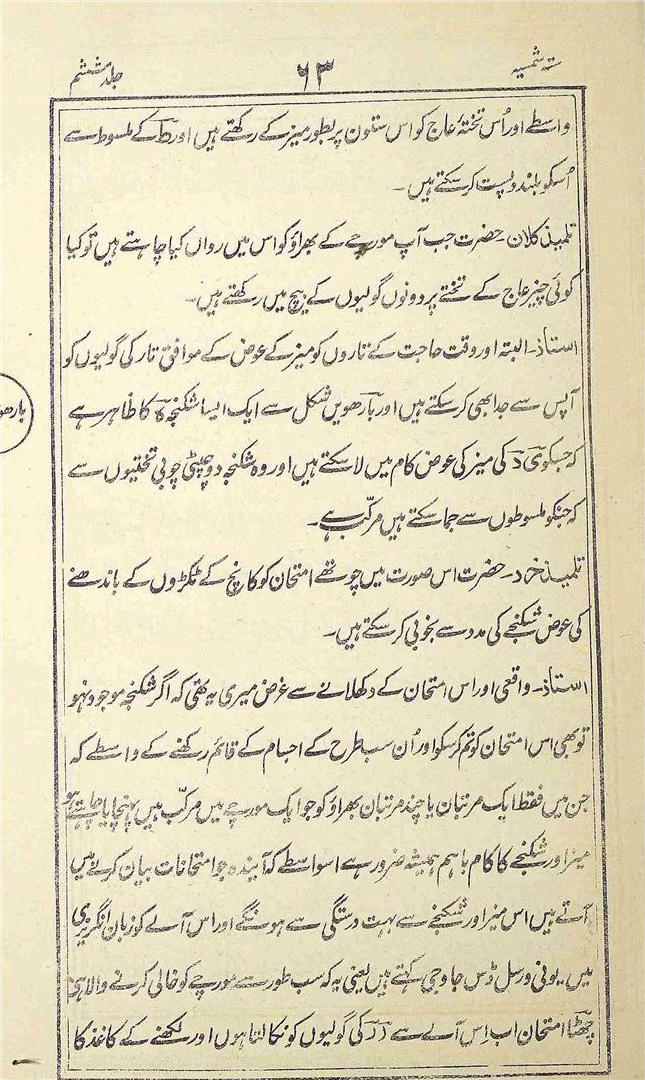 ستہ شمسیہ ۶۳ جلد ششم
واسطے اور اُس تختۂ عاج کو اس ستون پر بطور میز کے رکھتے ہیں اور ط کے ملسوط سے
اُسکو بلند و پست کر سکتے ہیں۔
تلمیذ کلان۔ حضرت جب آپ مورچے کے بھراؤ کو اس میں رواں کیا چاہتے ہیں تو کیا
کوئی چیز عاج کے تختے پر دونوں گولیوں کے بیچ میں رکھتے ہیں۔
استاذ۔ البتہ اور وقت حاجت کے تاروں کو میز کے عوض کے موافق تار کی گولیوں کو
آپس سے جدا بھی کر سکتے ہیں اور بارھویں شکل سے ایک ایسا شکنجہ کا ظاہر ہے
کہ جسکو ی د کی میز کی عوض کام میں لا سکتے ہیں اور وہ شکنجہ دو چپٹی چوبی تختیوں سے
کہ جنکو ملسوطوں سے جما سکتے ہیں مرکّب ہے۔
تلمیذ خرد۔ حضرت اس صورت میں چوتھے امتحان کو کانچ کے ٹکڑوں کے باندھنے
کی عوض شکنجے کی مدد سے بخوبی کر سکتے ہیں۔
استاذ۔ واقعی اور اس امتحان کے دکھلانے سے غرض میری یہ تھی کہ اگر شکنجہ موجود نہو
تو بھی اس امتحان کو تم کر سکو اور اُن سب طرح کے اجسام کے قائم رکھنے کے واسطے کہ
جن میں فقط ایک مرتبان یا چند مرتبان بھراؤ کو جو ایک مورچے میں مرکّب ہیں پہنچایا چاہتے ہو
میز اور شکنجے کا کام باہم ہمیشہ ضرور ہے اسواسطے کہ آیندہ جو امتحانات بیان کرنے میں
آتے ہیں اس میز اور شکنجے سے بہت درستگی سے ہونگے اور اس آلے کو زبان انگریزی
میں۔ یونی ورسل ڈس چارجی کہتے ہیں یعنی یہ کہ سب طور سے مورچے کو خالی کرنے والا ہی
چھٹا امتحان اب اِس آلے سے د د کی گولیوں کو نکالتا ہوں اور لکھنے کے کاغذ کا